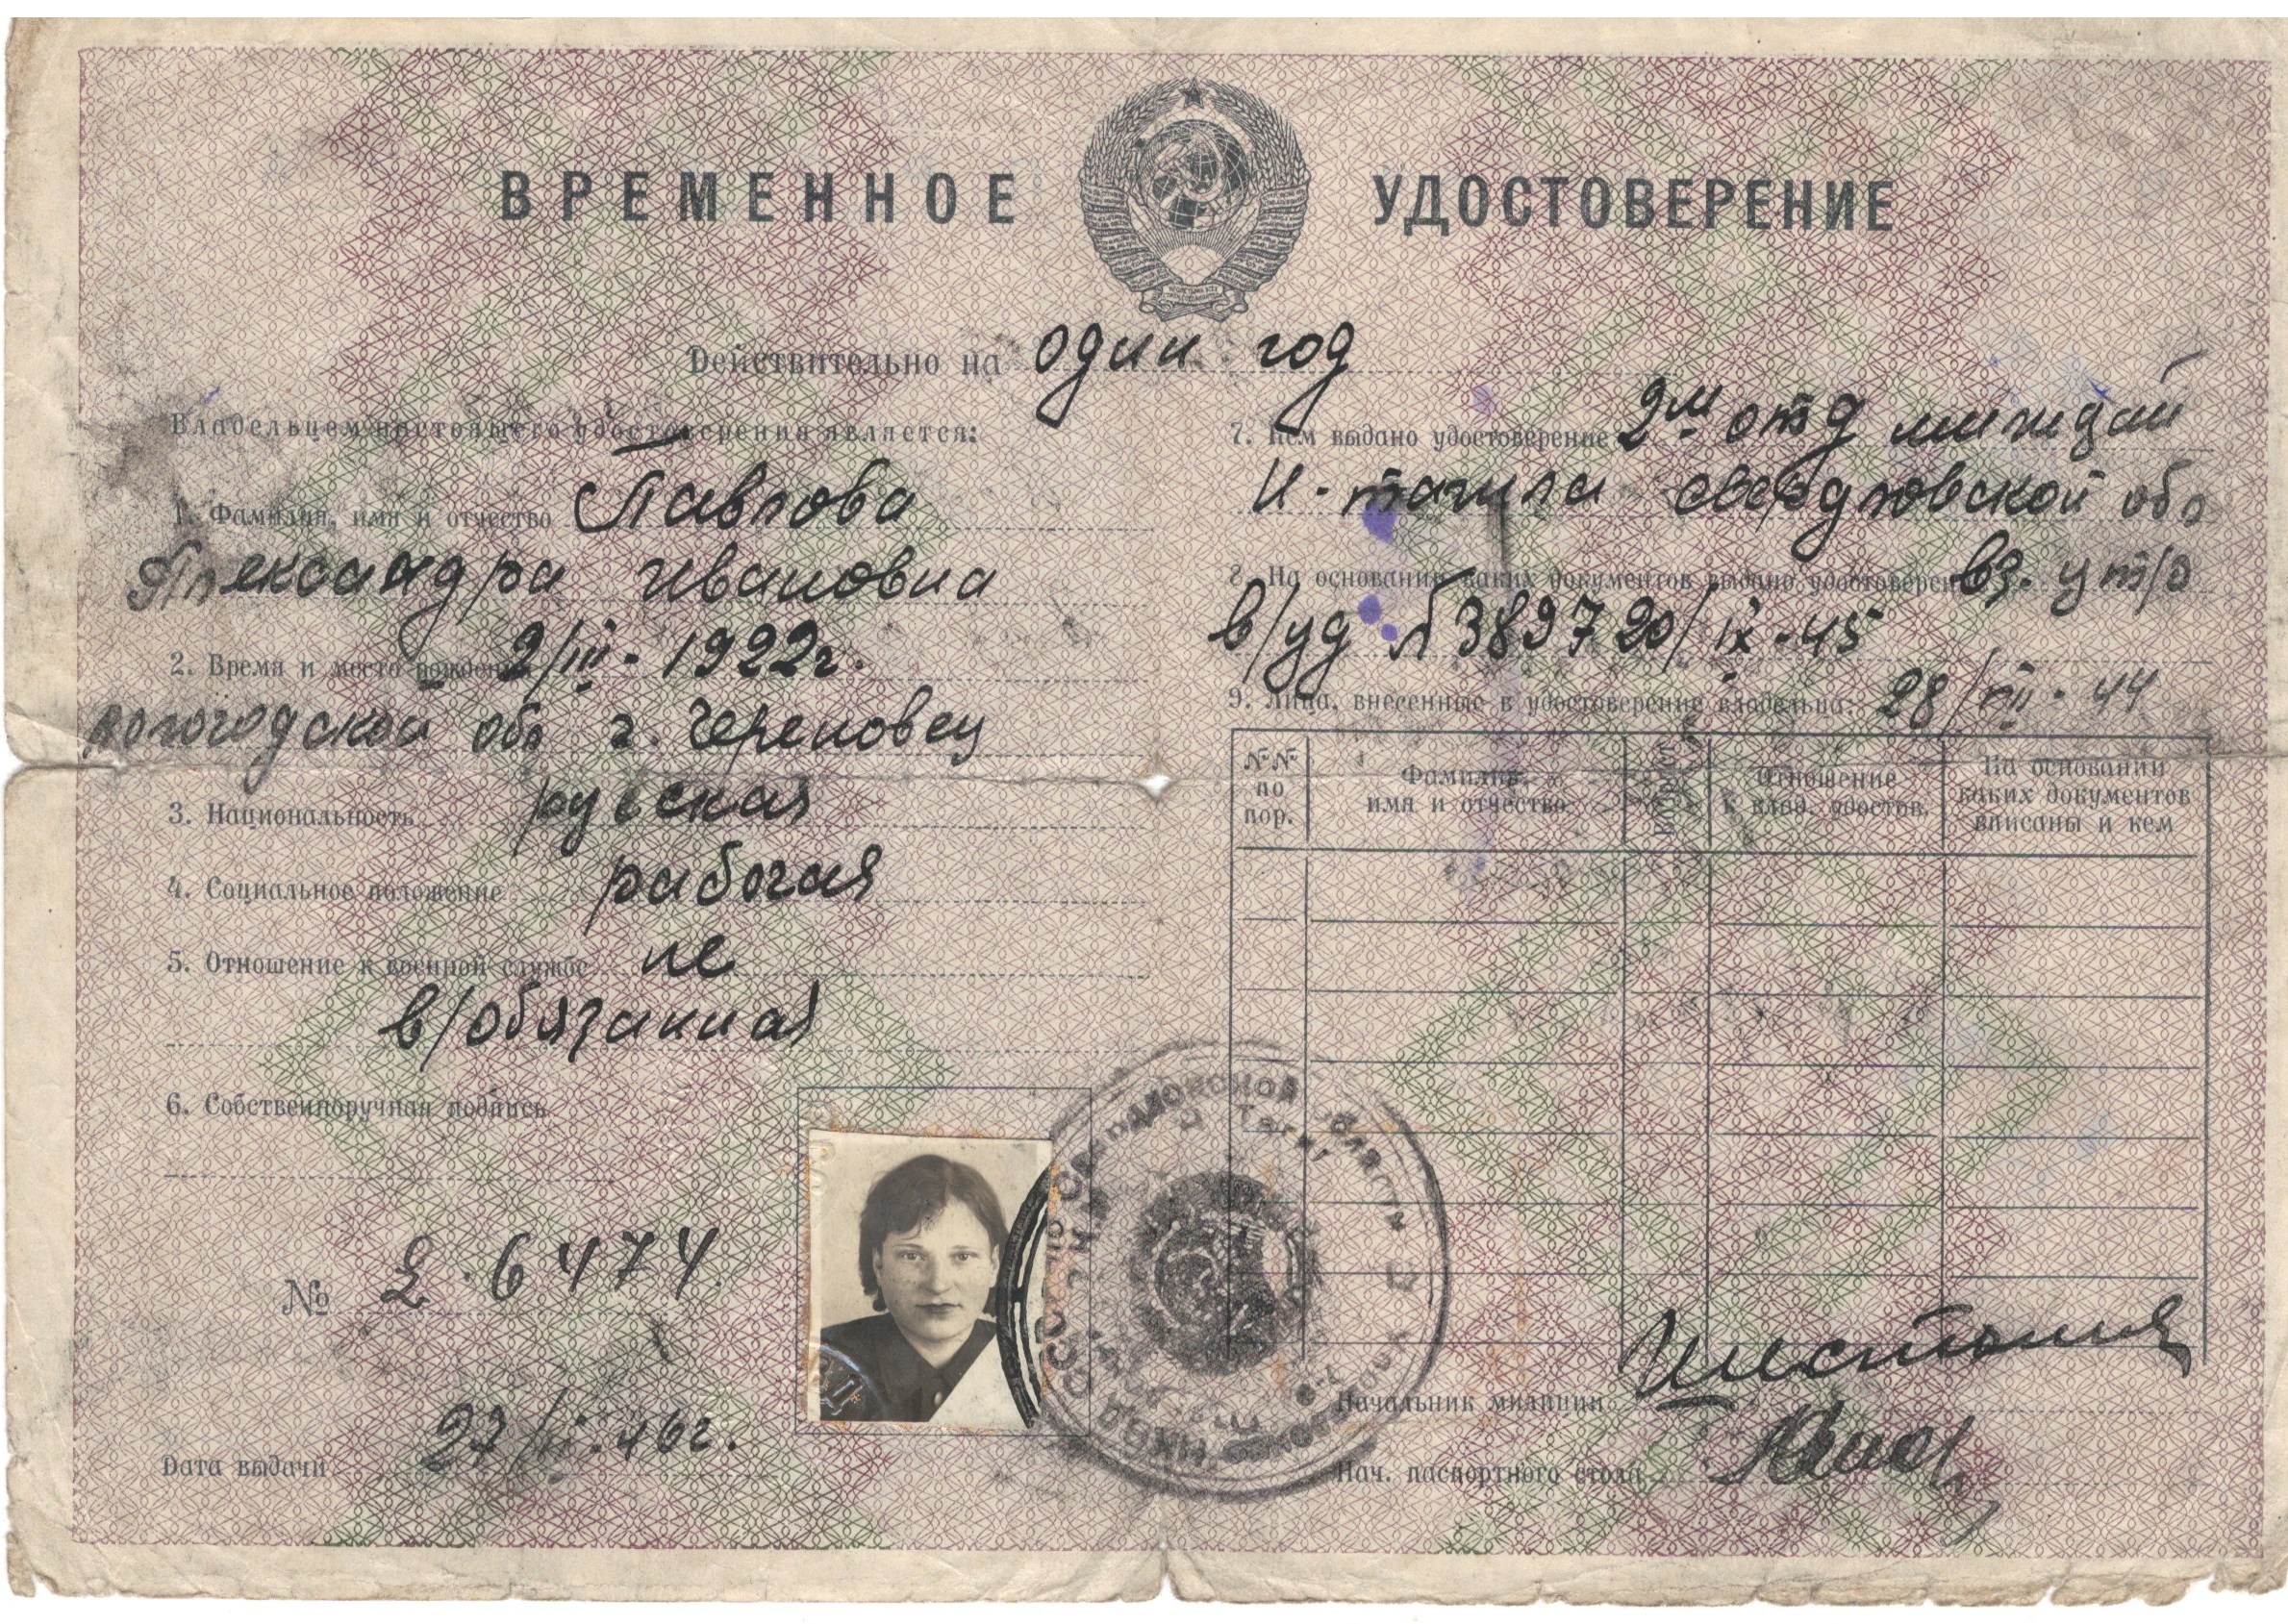 ВРЕМЕННОЕ УДОСТОВЕРЕНИЕ
Действительно на один год
Владельцем настоящего удостоверения является:
1. Фамилия, имя и отчество Павлова
Александра Ивановна
2. Время и место рождения 2/III-1922г.
вологодской обл г. Череповец
3. Национальность русская
4. Социальное положение рабочая
5. Отношение к военной службе не
в/обязанная
6. Собственноручная подпись
№ 2.6474
Дата выдачи 27/ 46г.
7. Кем выдано удостоверение 2м отд милиции
Н-тагила свердловской обл
8. На основании каких документов выдано удостоверение вз. ут/о
в/уд 389720/IX-45
9. Лица, внесенные в удостоверение владельца: 28/VII-44
№№ по пор.
Фамилия, имя и отчество
Возраст
Отношение к влад. удостов.
На основании каких документов вписаны и кем
Начальник милиции
Нач. паспортного стола
СВЕРДЛОВСКОЙ ОБЛАСТИ
Н. Тагил
НКВД